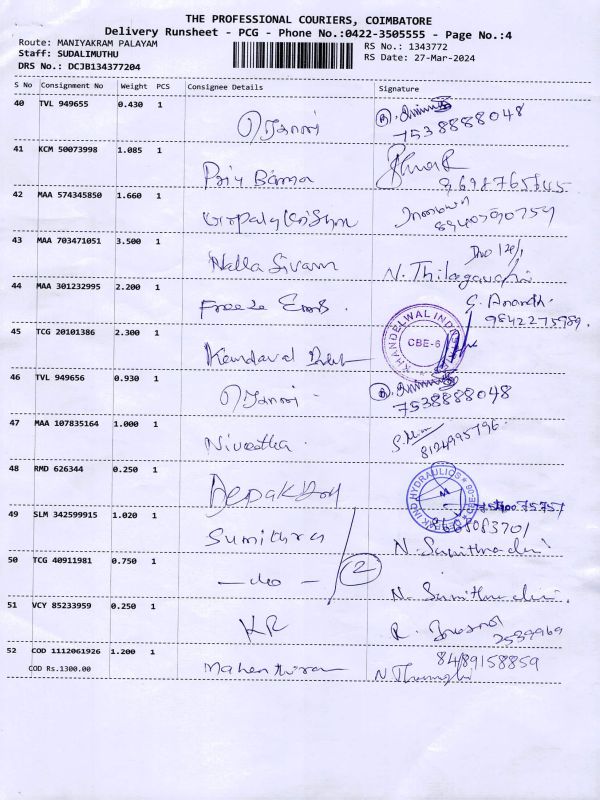 THE PROFESSIONAL COURIERS, COIMBATORE
Delivery Runsheet - PCG - Phone No.:0422-3505555 - Page No.:4
Route: MANIYAKRAM PALAYAM
RS No.: 1343772
Staff: SUDALIMUTHU
RS Date: 27-Mar-2024
DRS No.: DCJB134377204
S No Consignment No Weight PCS Consignee Details Signature
40 TVL 949655 0.430 1
7538888048
41 KCM 50073998 1.085 1
Priy Bama
42 MAA 574345850 1.660 1
43 MAA 703471051 3.500 1
Nalla Sivam N. Thilagavathi
44 MAA 301232995 2.200 1
Freeze G. Anandh.
9842275989.
45 TCG 20101386 2.300 1
KHANDELWAL
CBE-6
46 TVL 949656 0.930 1
7538888048
47 MAA 107835164 1.000 1
Nivestha. 8124995796.
48 RMD 626344 0.250 1
Deepak
HYDRAULICS
49 SLM 342599915 1.020 1
8668083701
Sumithra N. Sumithradevi
50 TCG 40911981 0.750 1
— do — 2 N. Sumithradevi.
51 VCY 85233959 0.250 1
KR R.
52 COD 1112061926 1.200 1
8489158859
COD Rs.1300.00
Mahenthiran